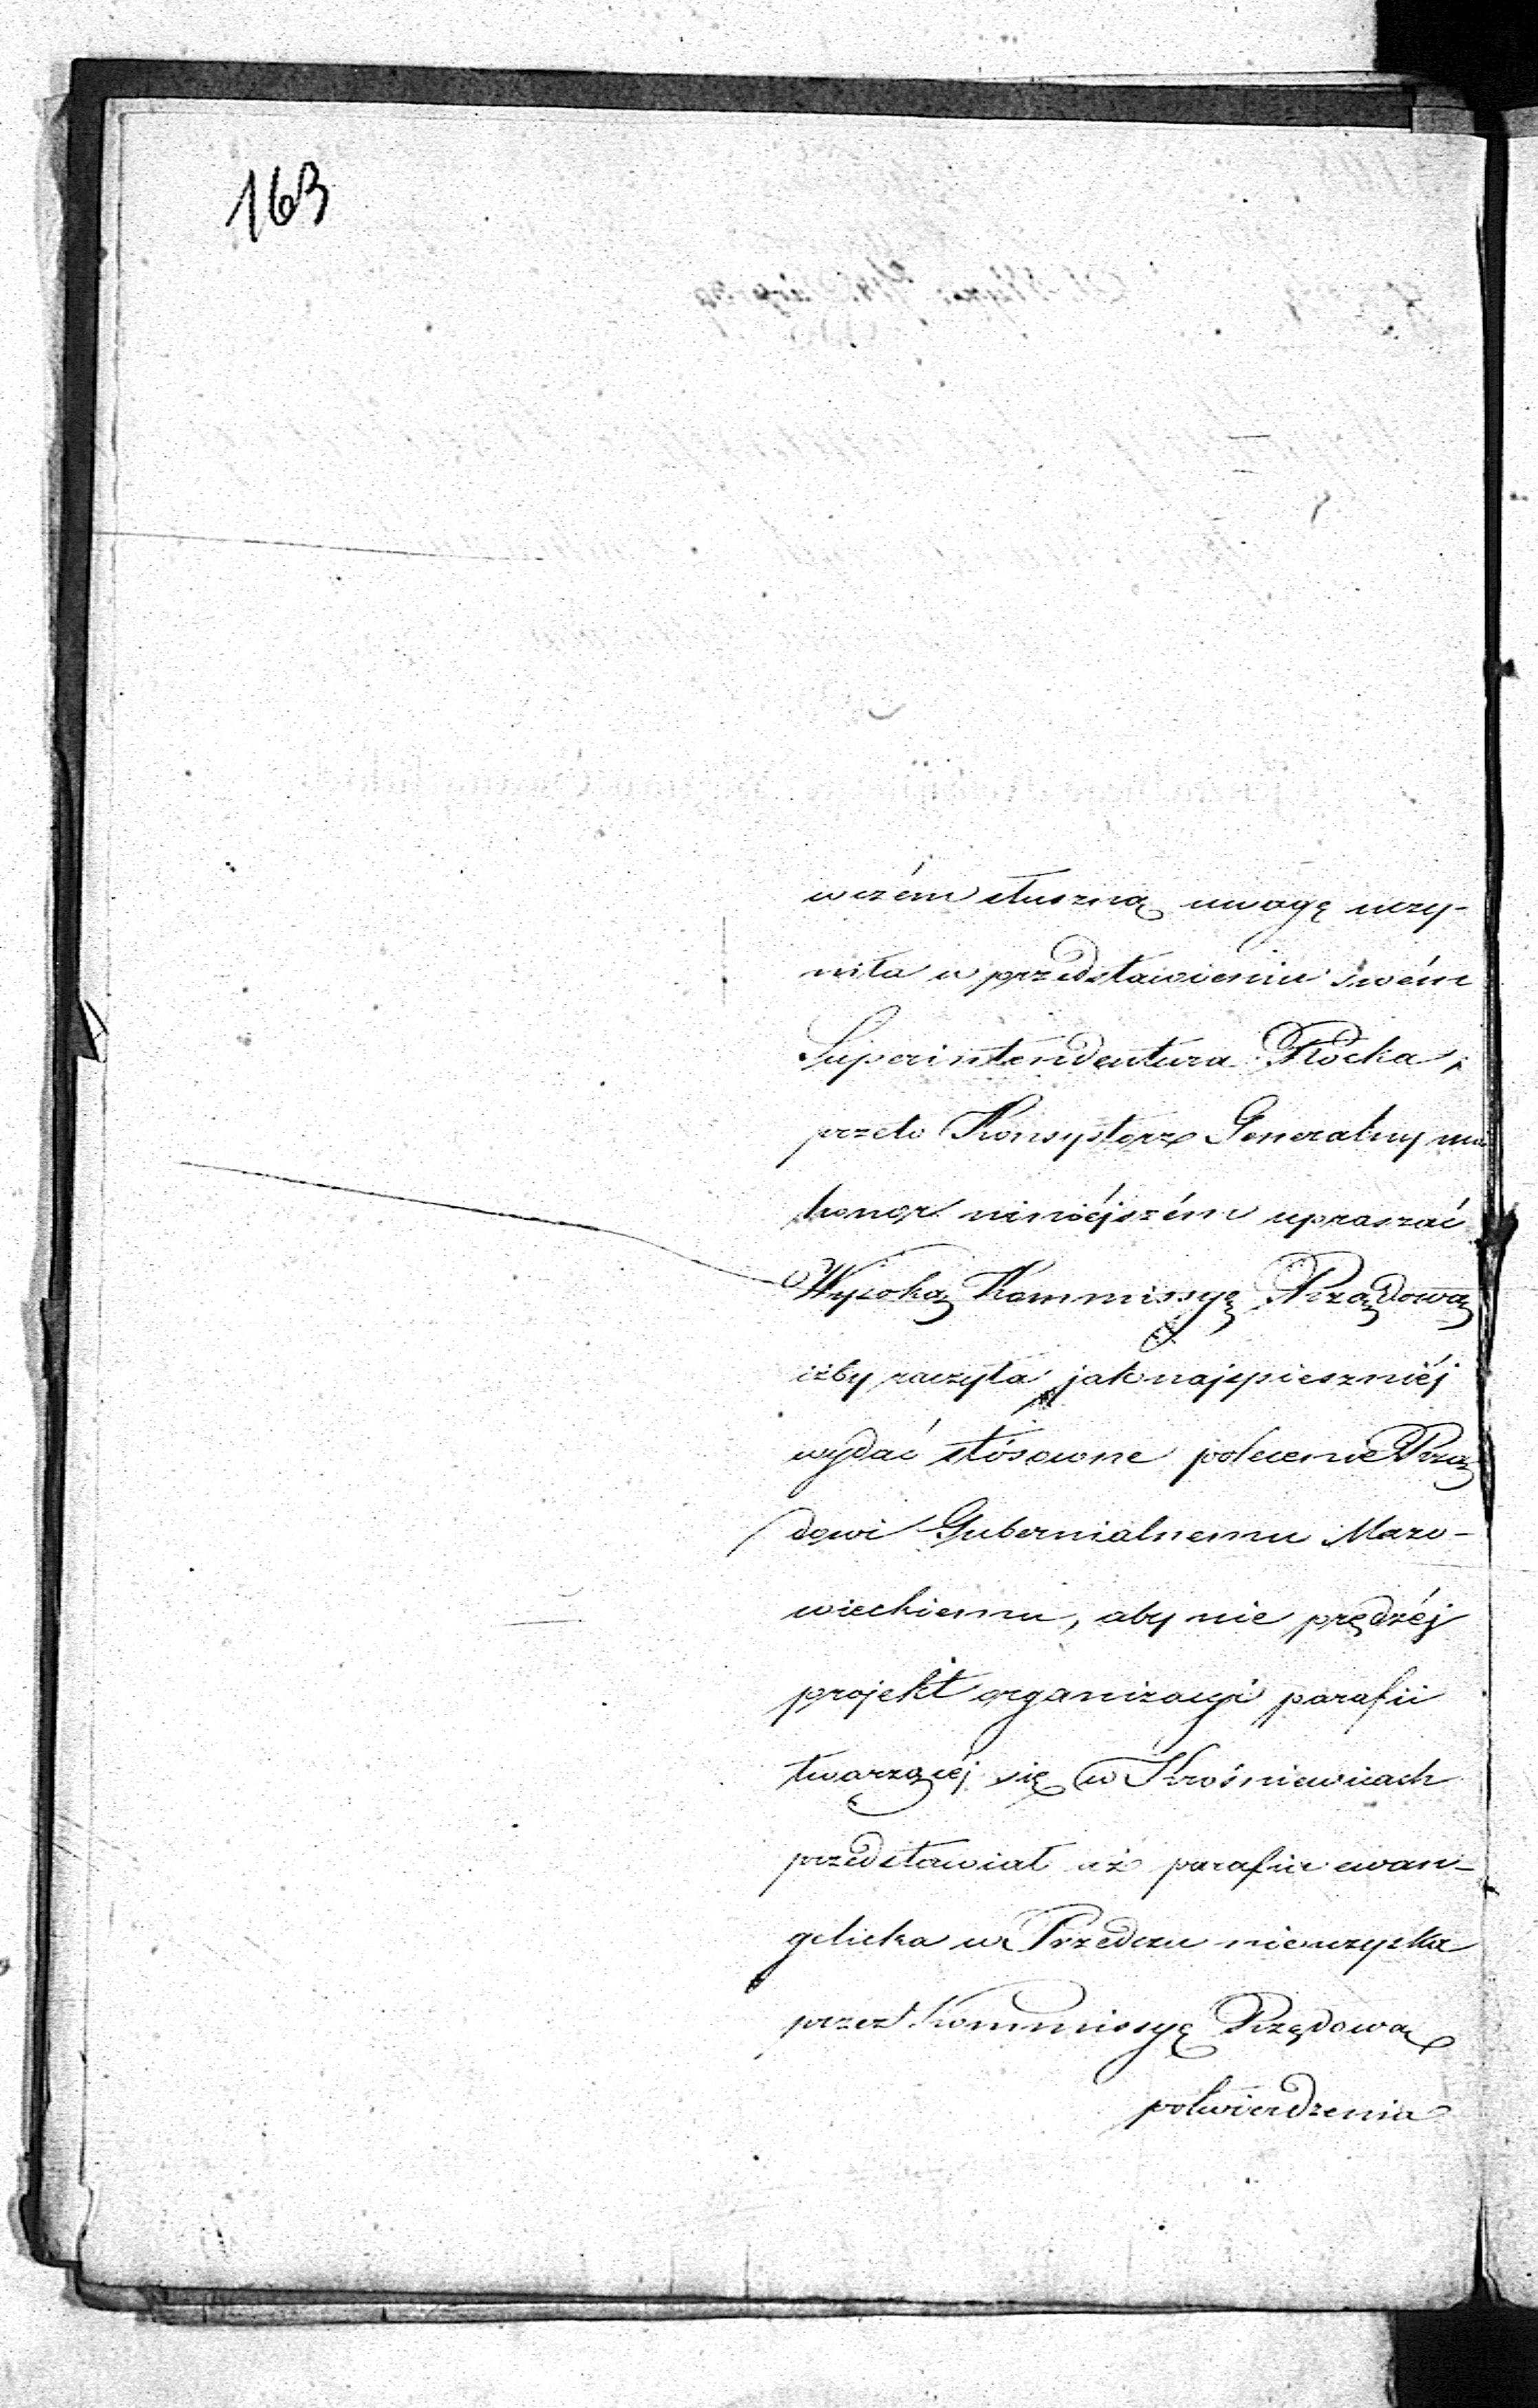 163
w czém słuszną uwagę uczy-
niła w przedstawieniu swém
Superintendentura Płocka,
przeto Konsystorz Generalny ma
honor niniéjszém upraszać
Wysoką Kommissyę Rządową
iżby raczyła jaknajspieszniéj
wydać stósowne polecenie Rzą
dowi Gubernialnemu Mazo-
wieckiemu, aby nie prędzéj
projekt organizacyi parafii
tworzącéj się w Krośniewicach
przedstawiał aż parafia ewan-
gelicka w Przedczu nieuzyska
przez Kommissyę Rządową
potwierdzenia